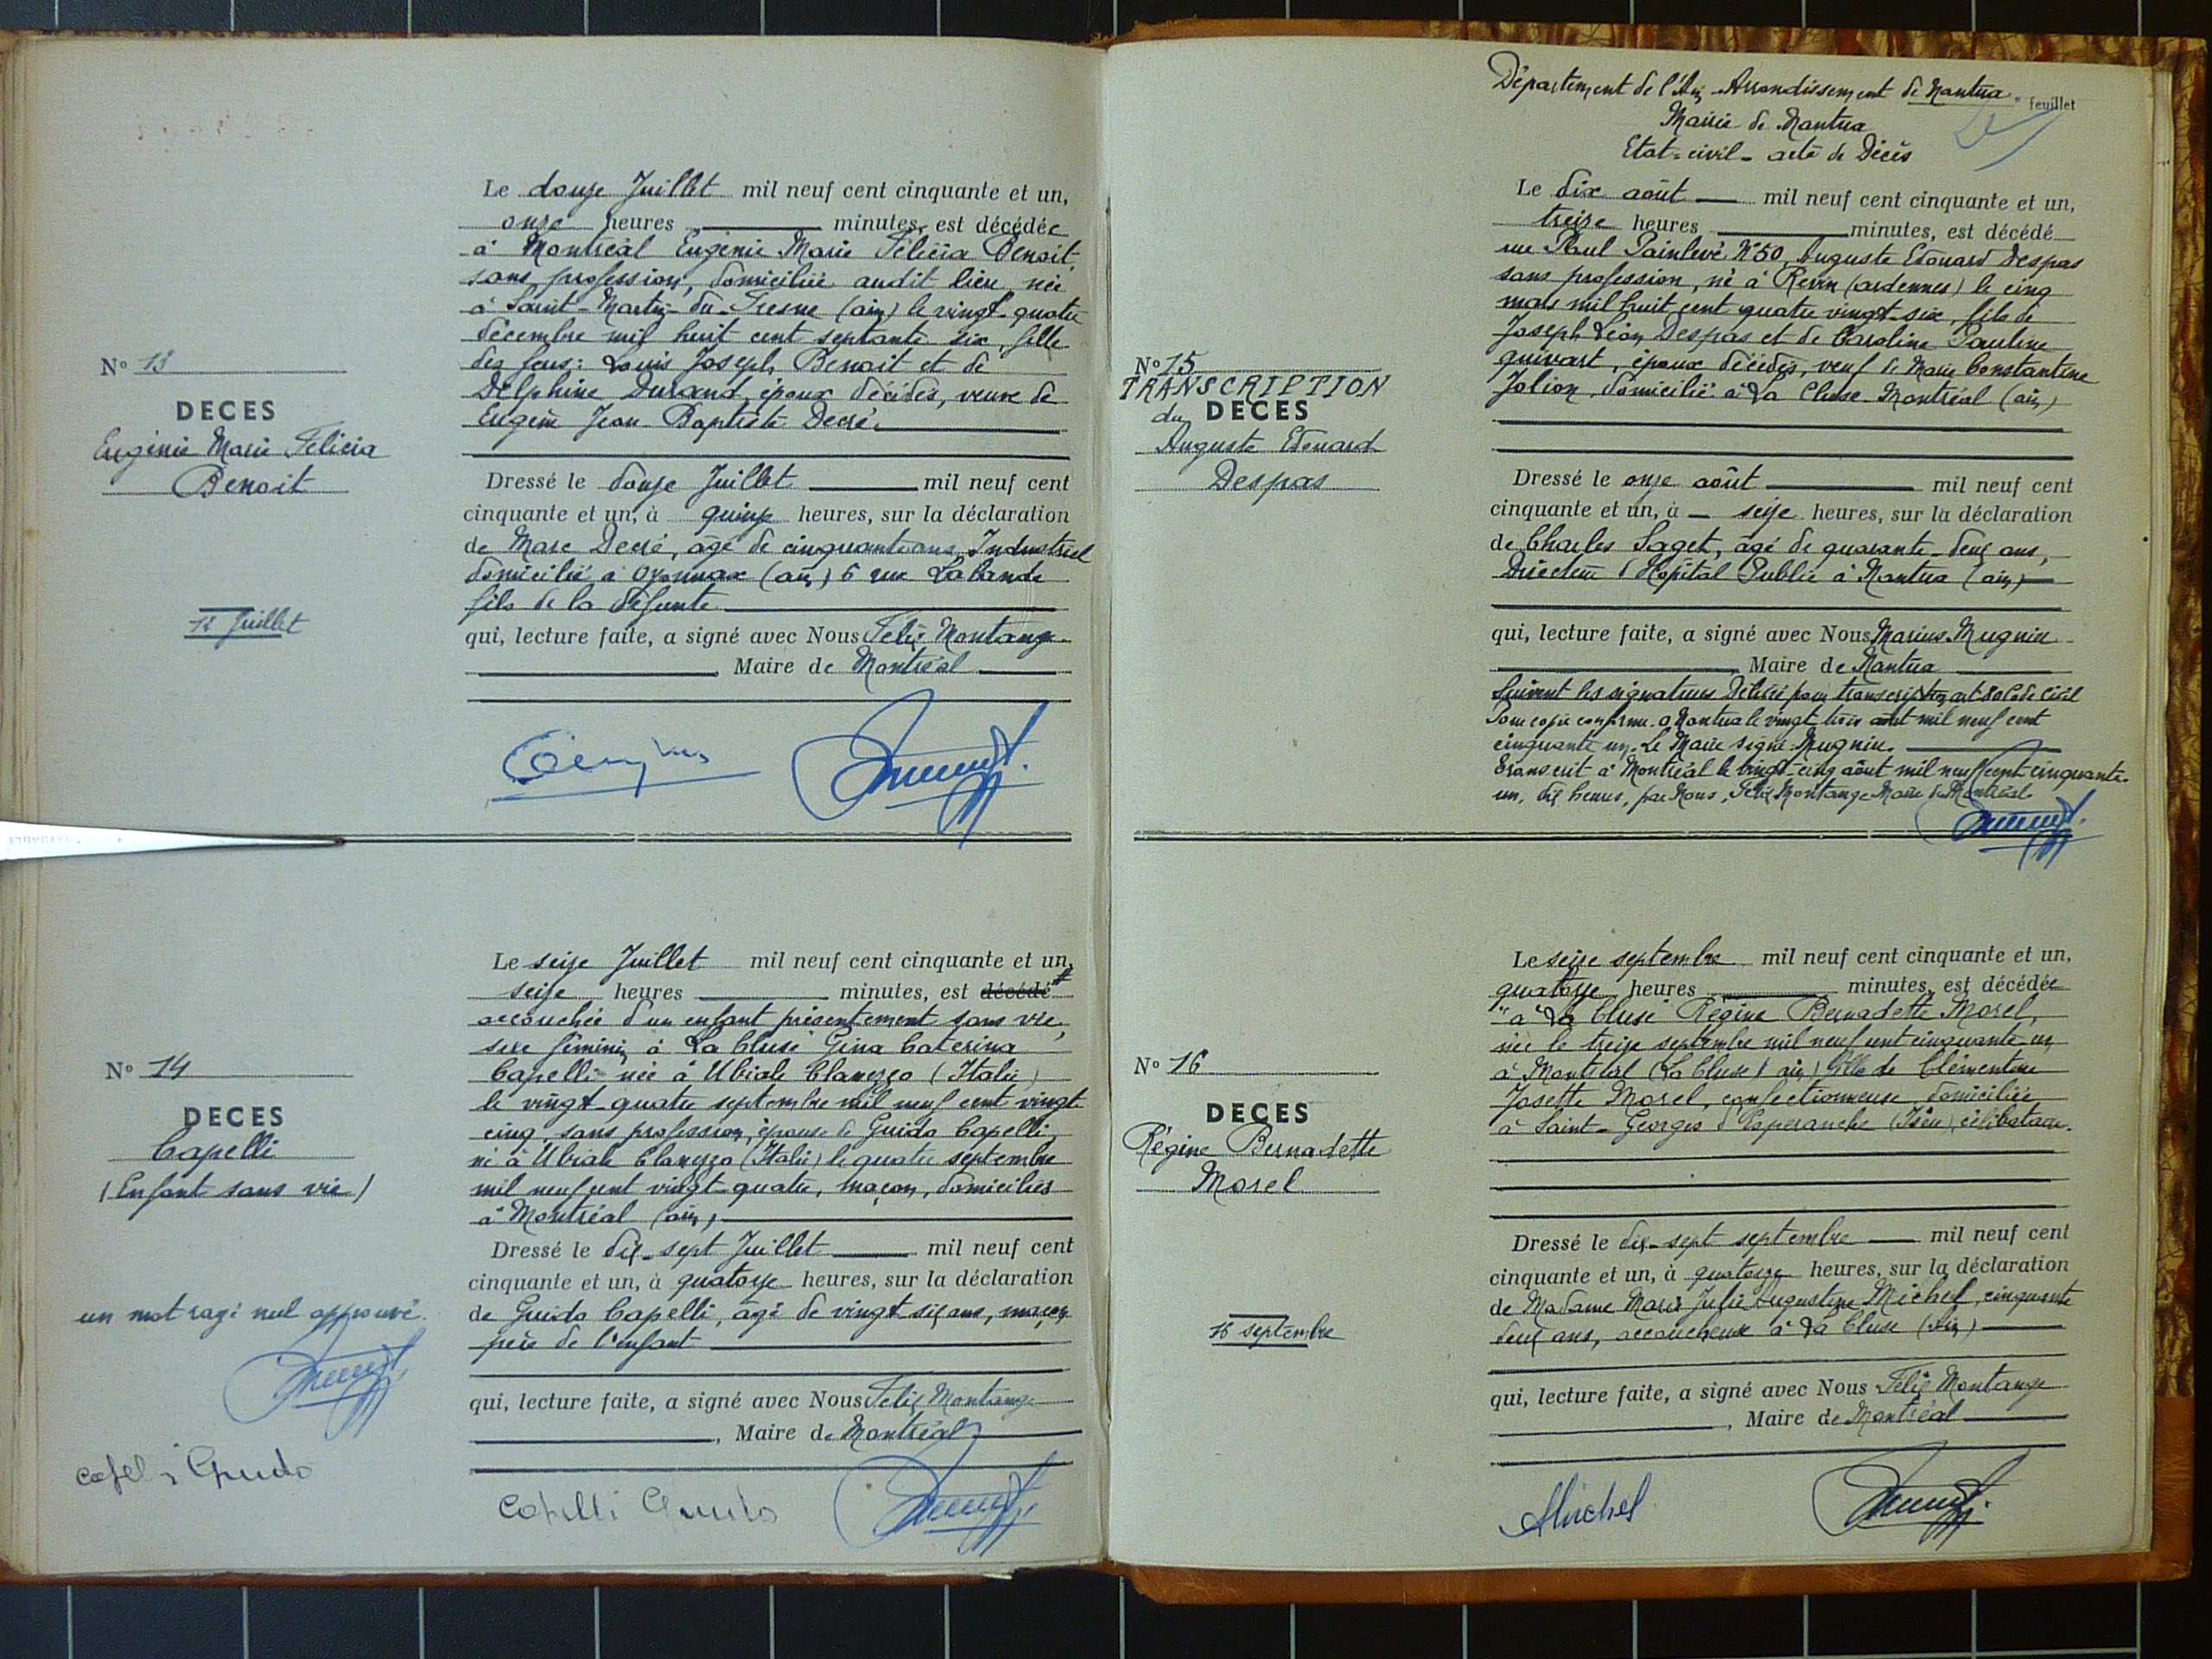 Le douze Juillet mil neuf cent cinquante et un,
onze heures minutes, est décédée
à Montréal Eugénie Marie Félicia Benoit,
sans profession, domiciliée audit lieu, née
à Saint-Martin-du-Fresne (ain) le vingt-quatre
décembre mil huit cent septante six, fille
des feus: Louis Joseph Benoit et de
Delphine Durand, époux décédés, veuve de
Eugène Jean Baptiste Decré.
Nº 13
DECES
Eugénie Marie Félicia
Benoit
12 Juillet
Dressé le douze Juillet mil neuf cent
cinquante et un, à quinze heures, sur la déclaration
de Marc Decré, âgé de cinquante ans, Industriel
domicilié à Oyonnax (ain) 6 rue Lalande
fils de la défunte
qui, lecture faite, a signé avec Nous Félix Montange
Maire de Montréal
Le seize Juillet mil neuf cent cinquante et un,
seize heures minutes, est décédé
accouchée d'un enfant présentement sans vie,
sexe féminin à La Cluse Gina Caterina
Capelli née à Ubiale Clanezzo (Italie)
le vingt-quatre septembre mil neuf cent vingt
cinq, sans profession, épouse de Guido Capelli
né à Ubiale Clanezzo (Italie) le quatre septembre
mil neuf cent vingt-quatre, maçon, domiciliés
à Montréal (ain)
Nº 14
DECES
Capelli
(Enfant sans vie)
un mot rayé nul approuvé.
Capelli Guido
Dressé le dix-sept Juillet mil neuf cent
cinquante et un, à quatorze heures, sur la déclaration
de Guido Capelli, âgé de vingt six ans, maçon
père de l'enfant
qui, lecture faite, a signé avec Nous Félix Montange
, Maire de Montréal
Capelli Guido
Département de l'Ain Arrondissement de Nantua feuillet
Mairie de Nantua
Etat-civil - acte de Décès
Le dix août mil neuf cent cinquante et un,
treize heures minutes, est décédé
rue Paul Painlevé Nº 50, Auguste Edouard Despas
sans profession, né à Revin (ardennes) le cinq
mars mil huit cent quatre vingt-six, fils de
Joseph Léon Despas et de Caroline Pauline
quivart, époux décédés, veuf de Marie Constantine
Jolion, domicilié à La Cluse-Montréal (ain)
Nº 15
TRANSCRIPTION
du DECES
Auguste Edouard
Despas
Dressé le onze août mil neuf cent
cinquante et un, à seize heures, sur la déclaration
de Charles Saget, âgé de quarante-deux ans,
Directeur d'Hôpital Public à Nantua (ain)
qui, lecture faite, a signé avec Nous Marius Mugnier
, Maire de Nantua
Suivent les signatures Délivré pour transcription art 80 Code Civil
Pour copie conforme. a Nantua le vingt trois août mil neuf cent
cinquante un. Le Maire signé: Mugnier.
Transcrit à Montréal le vingt-cinq août mil neuf cent cinquante-
un, dix heures, par Nous, Félix Montange Maire de Montréal
Le seize septembre mil neuf cent cinquante et un,
quatorze heures minutes, est décédée
à La Cluse Régine Bernadette Morel,
née le treize septembre mil neuf cent cinquante un
à Montréal (La Cluse) ain) fille de Clémentine
Josette Morel, confectionneuse, domiciliée
à Saint-Georges d'Esperanche (Isère), célibataire.
Nº 16
DECES
Régine Bernadette
Morel
16 septembre
Dressé le dix-sept septembre mil neuf cent
cinquante et un, à quatorze heures, sur la déclaration
de Madame Marie Julie Augustine Michel, cinquante
deux ans, accoucheuse à La Cluse (Ain)
qui, lecture faite, a signé avec Nous Félix Montange
, Maire de Montréal
Michel